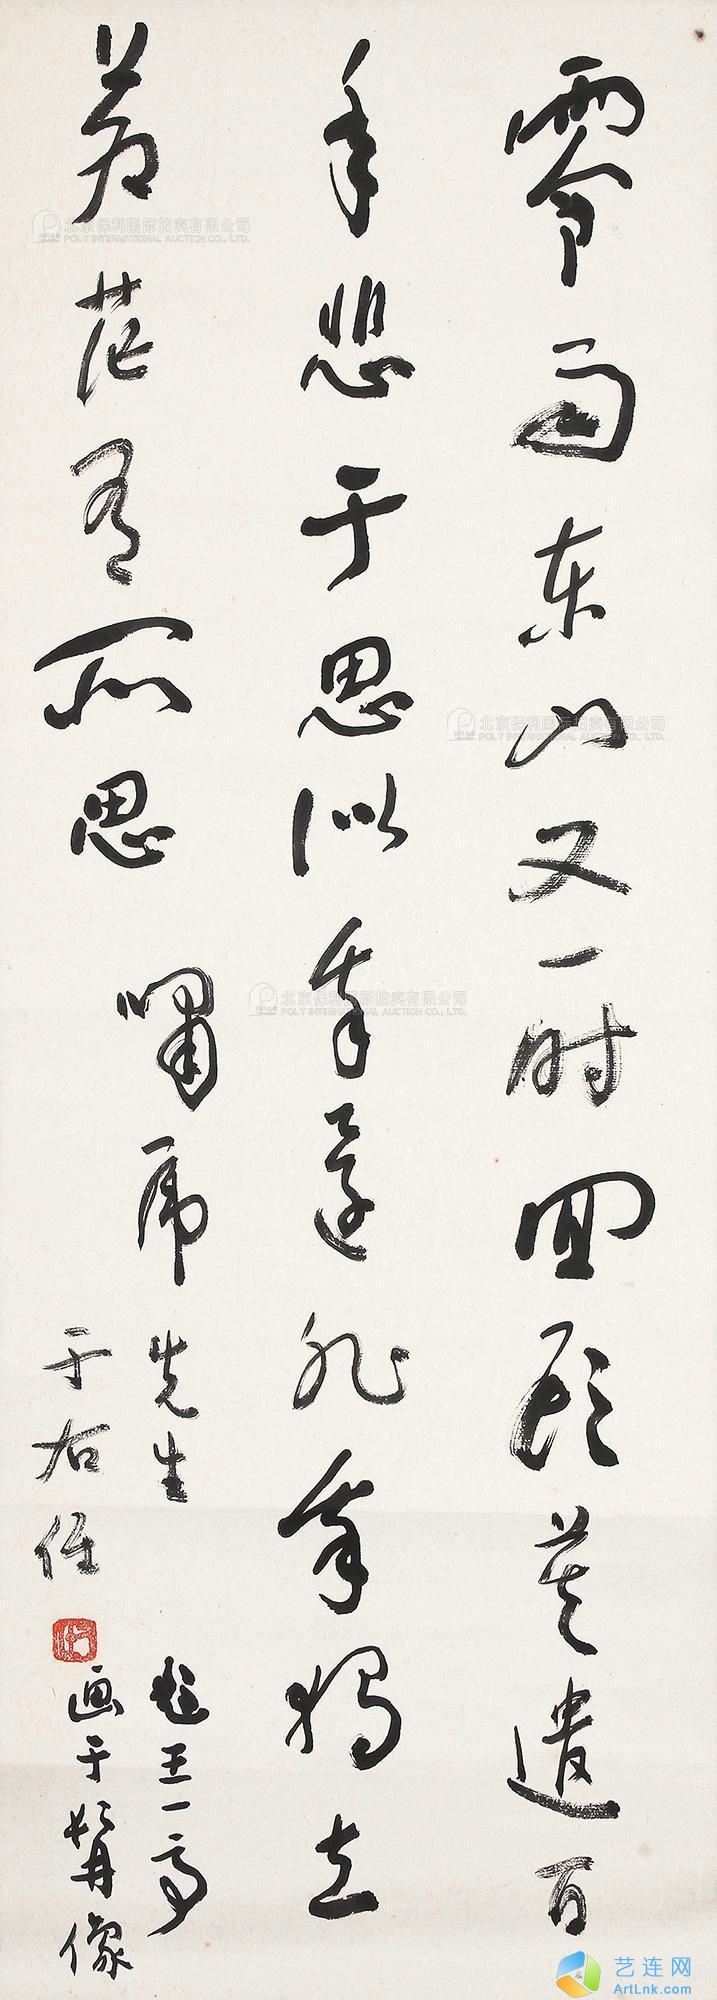 零雨東山又一時回頭莫遣百
年悲于思似我還非我獨立
蒼茫有所思
嘯虎先生
題王一亭
画于髯像
于右任
北京保利国际拍卖有限公司
POLY INTERNATIONAL AUCTION CO., LTD.
北京保利国际拍卖有限公司
POLY INTERNATIONAL AUCTION CO., LTD.
北京保利国际拍卖有限公司
POLY INTERNATIONAL AUCTION CO., LTD.
艺连网
ArtLnk.com